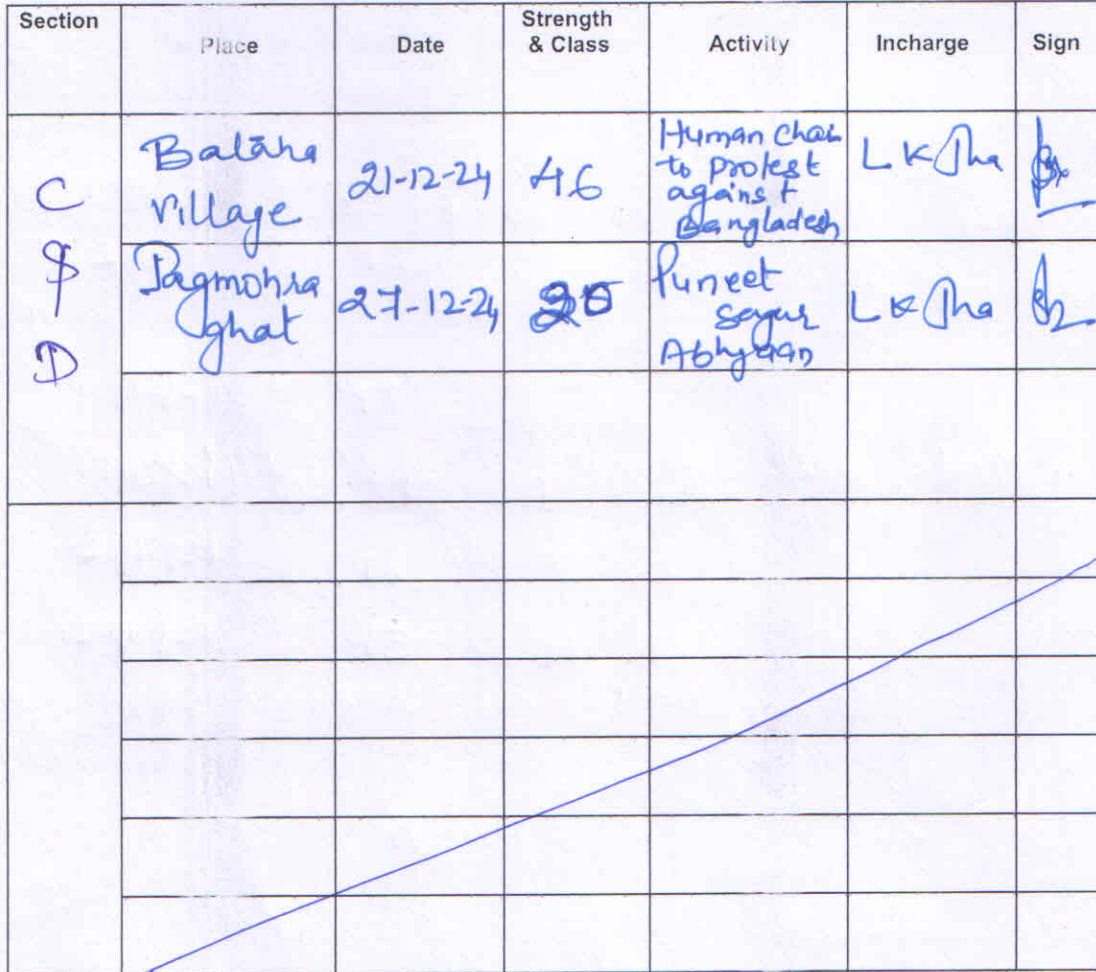 Section Place Date Strength & Class Activity Incharge Sign
C
$
D
Balaha village 21-12-24 46 Human chain to protest against Bangladesh L K Jha
Dagmohra ghat 27-12-24 20 Puneet sagar Abhyaan L K Jha